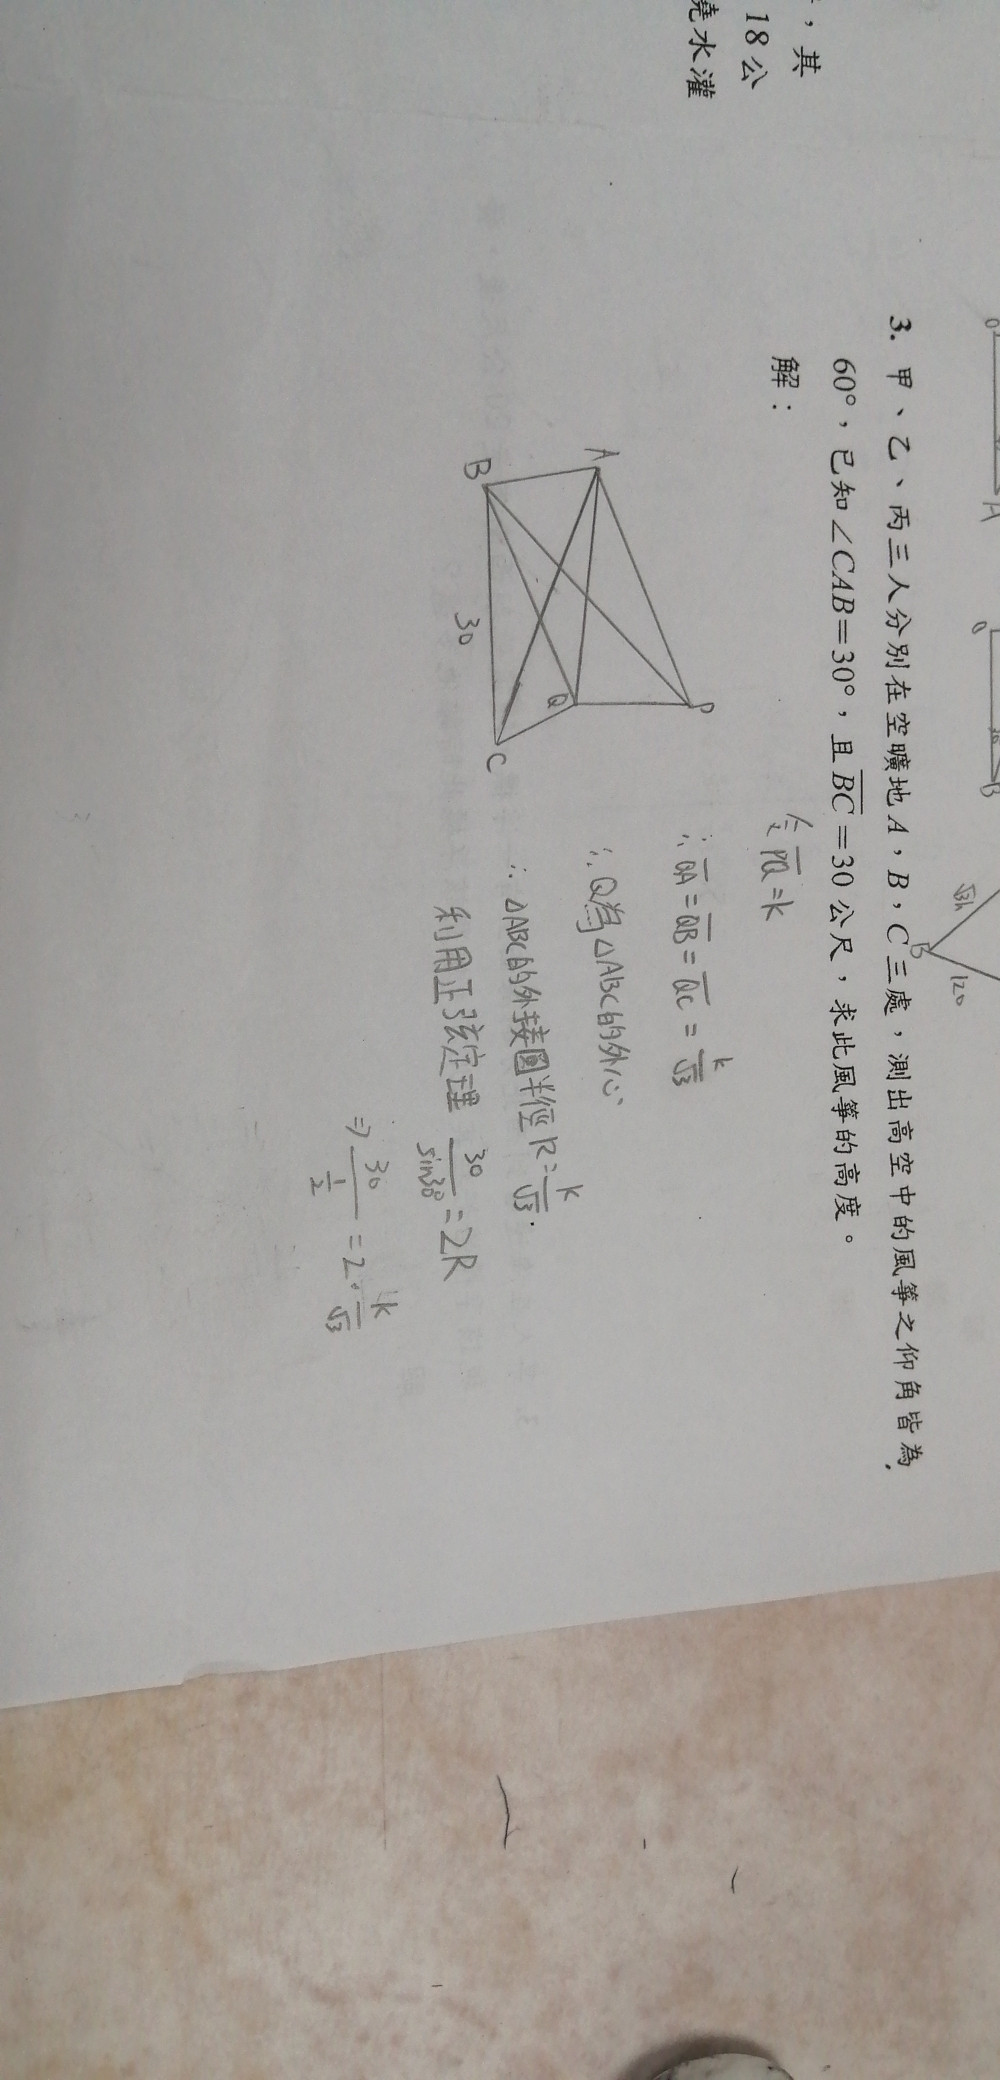 ，其
18公
澆水灌
O
A
O
30
B
√3h
B
120
3. 甲、乙、丙三人分別在空曠地A，B，C三處，測出高空中的風箏之仰角皆為
60°，已知∠CAB=30°，且BC=30公尺，求此風箏的高度。
解：
A
B
C
P
Q
30
令PQ=k
∴QA=QB=QC=k/√3
∴Q為△ABC的外心
∴△ABC的外接圓半徑R=k/√3.
利用正弦定理 30/sin30°=2R
⇒30/(1/2)=2·k/√3